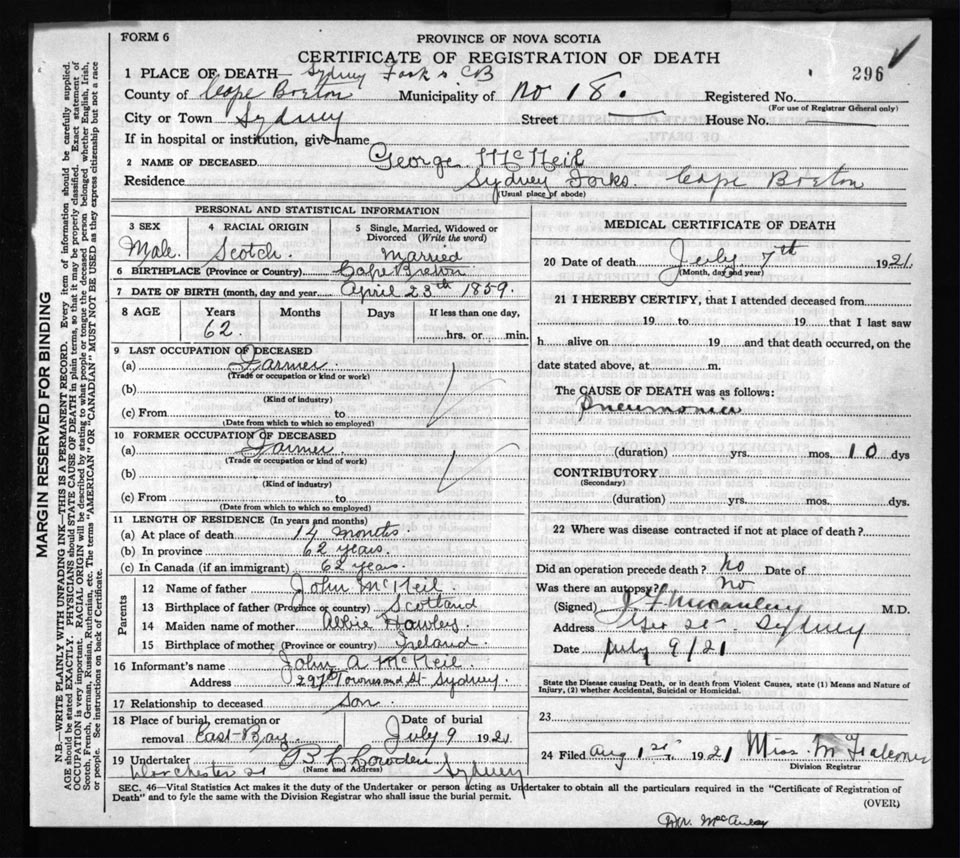 FORM 6
PROVINCE OF NOVA SCOTIA
CERTIFICATE OF REGISTRATION OF DEATH
296
1 PLACE OF DEATH— Sydney Forks CB
County of Cape Breton Municipality of No 18. Registered No.
(For use of Registrar General only)
City or Town Sydney Street — House No. —
If in hospital or institution, give name
2 NAME OF DECEASED George McNeil
Residence Sydney Forks. Cape Breton
(Usual place of abode)
PERSONAL AND STATISTICAL INFORMATION
3 SEX 4 RACIAL ORIGIN 5 Single, Married, Widowed or
Divorced (Write the word)
Male. Scotch. Married
6 BIRTHPLACE (Province or Country) Cape Breton
7 DATE OF BIRTH (month, day and year) April 23th 1859.
8 AGE Years Months Days If less than one day,
62. hrs. or min.
9 LAST OCCUPATION OF DECEASED
(a) Farmer
(Trade or occupation or kind or work)
(b)
(Kind of industry)
(c) From to
(Date from which to which so employed)
10 FORMER OCCUPATION OF DECEASED
(a) Farmer.
(Trade or occupation or kind of work)
(b)
(Kind of industry)
(c) From to
(Date from which to which so employed)
11 LENGTH OF RESIDENCE (In years and months)
(a) At place of death 14 months
(b) In province 62 years.
(c) In Canada (if an immigrant) 62 years.
Parents
12 Name of father John McNeil
13 Birthplace of father (Province or country) Scotland
14 Maiden name of mother Abbie Hawley
15 Birthplace of mother (Province or country) Ireland.
16 Informant's name John A McNeil.
Address 297 Townsend St- Sydney.
17 Relationship to deceased Son.
18 Place of burial, cremation or Date of burial
removal East-Bay. July 9 1921
19 Undertaker
(Name and Address)
Dorchester st Sydney
MEDICAL CERTIFICATE OF DEATH
20 Date of death July 7th 1921.
(Month, day and year)
21 I HEREBY CERTIFY, that I attended deceased from
19 to 19 that I last saw
h alive on 19 and that death occurred, on the
date stated above, at m.
The CAUSE OF DEATH was as follows:
Pneumonia
(duration) yrs. mos. 10 dys
CONTRIBUTORY
(Secondary)
(duration) yrs. mos. dys.
22 Where was disease contracted if not at place of death?
Did an operation precede death? No Date of
Was there an autopsy? No
(Signed) M.D.
Address Geo st. Sydney
Date July 9/21
State the Disease causing Death, or in death from Violent Causes, state (1) Means and Nature of
Injury, (2) whether Accidental, Suicidal or Homicidal.
23
24 Filed Aug 1st, 1921 Miss M
Division Registrar
SEC. 46—Vital Statistics Act makes it the duty of the Undertaker or person acting as Undertaker to obtain all the particulars required in the "Certificate of Registration of
Death" and to fyle the same with the Division Registrar who shall issue the burial permit.
(OVER)
MARGIN RESERVED FOR BINDING
N.B.—WRITE PLAINLY WITH UNFADING INK—THIS IS A PERMANENT RECORD. Every item of information should be carefully supplied.
AGE should be stated EXACTLY. PHYSICIANS should STATE CAUSE OF DEATH in plain terms, so that it may be properly classified. Exact statement of
OCCUPATION is very important. RACIAL ORIGIN will be described by stating to what people or tongue the deceased person belonged whether English, Irish,
Scotch, French, German, Russian, Ruthenian, etc. The terms "AMERICAN" or "CANADIAN" MUST NOT BE USED as they express citizenship but not a race
or people. See instructions on back of Certificate.